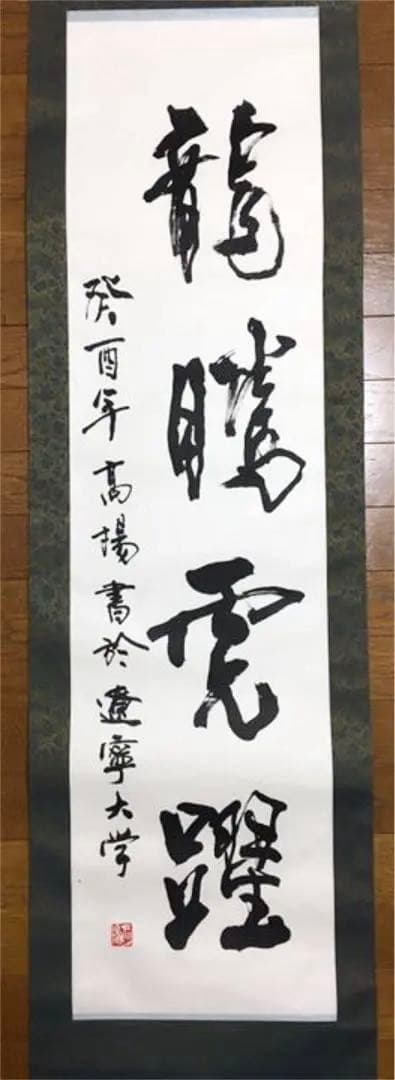 龍騰虎躍
癸酉年 高揚書於遼寧大学